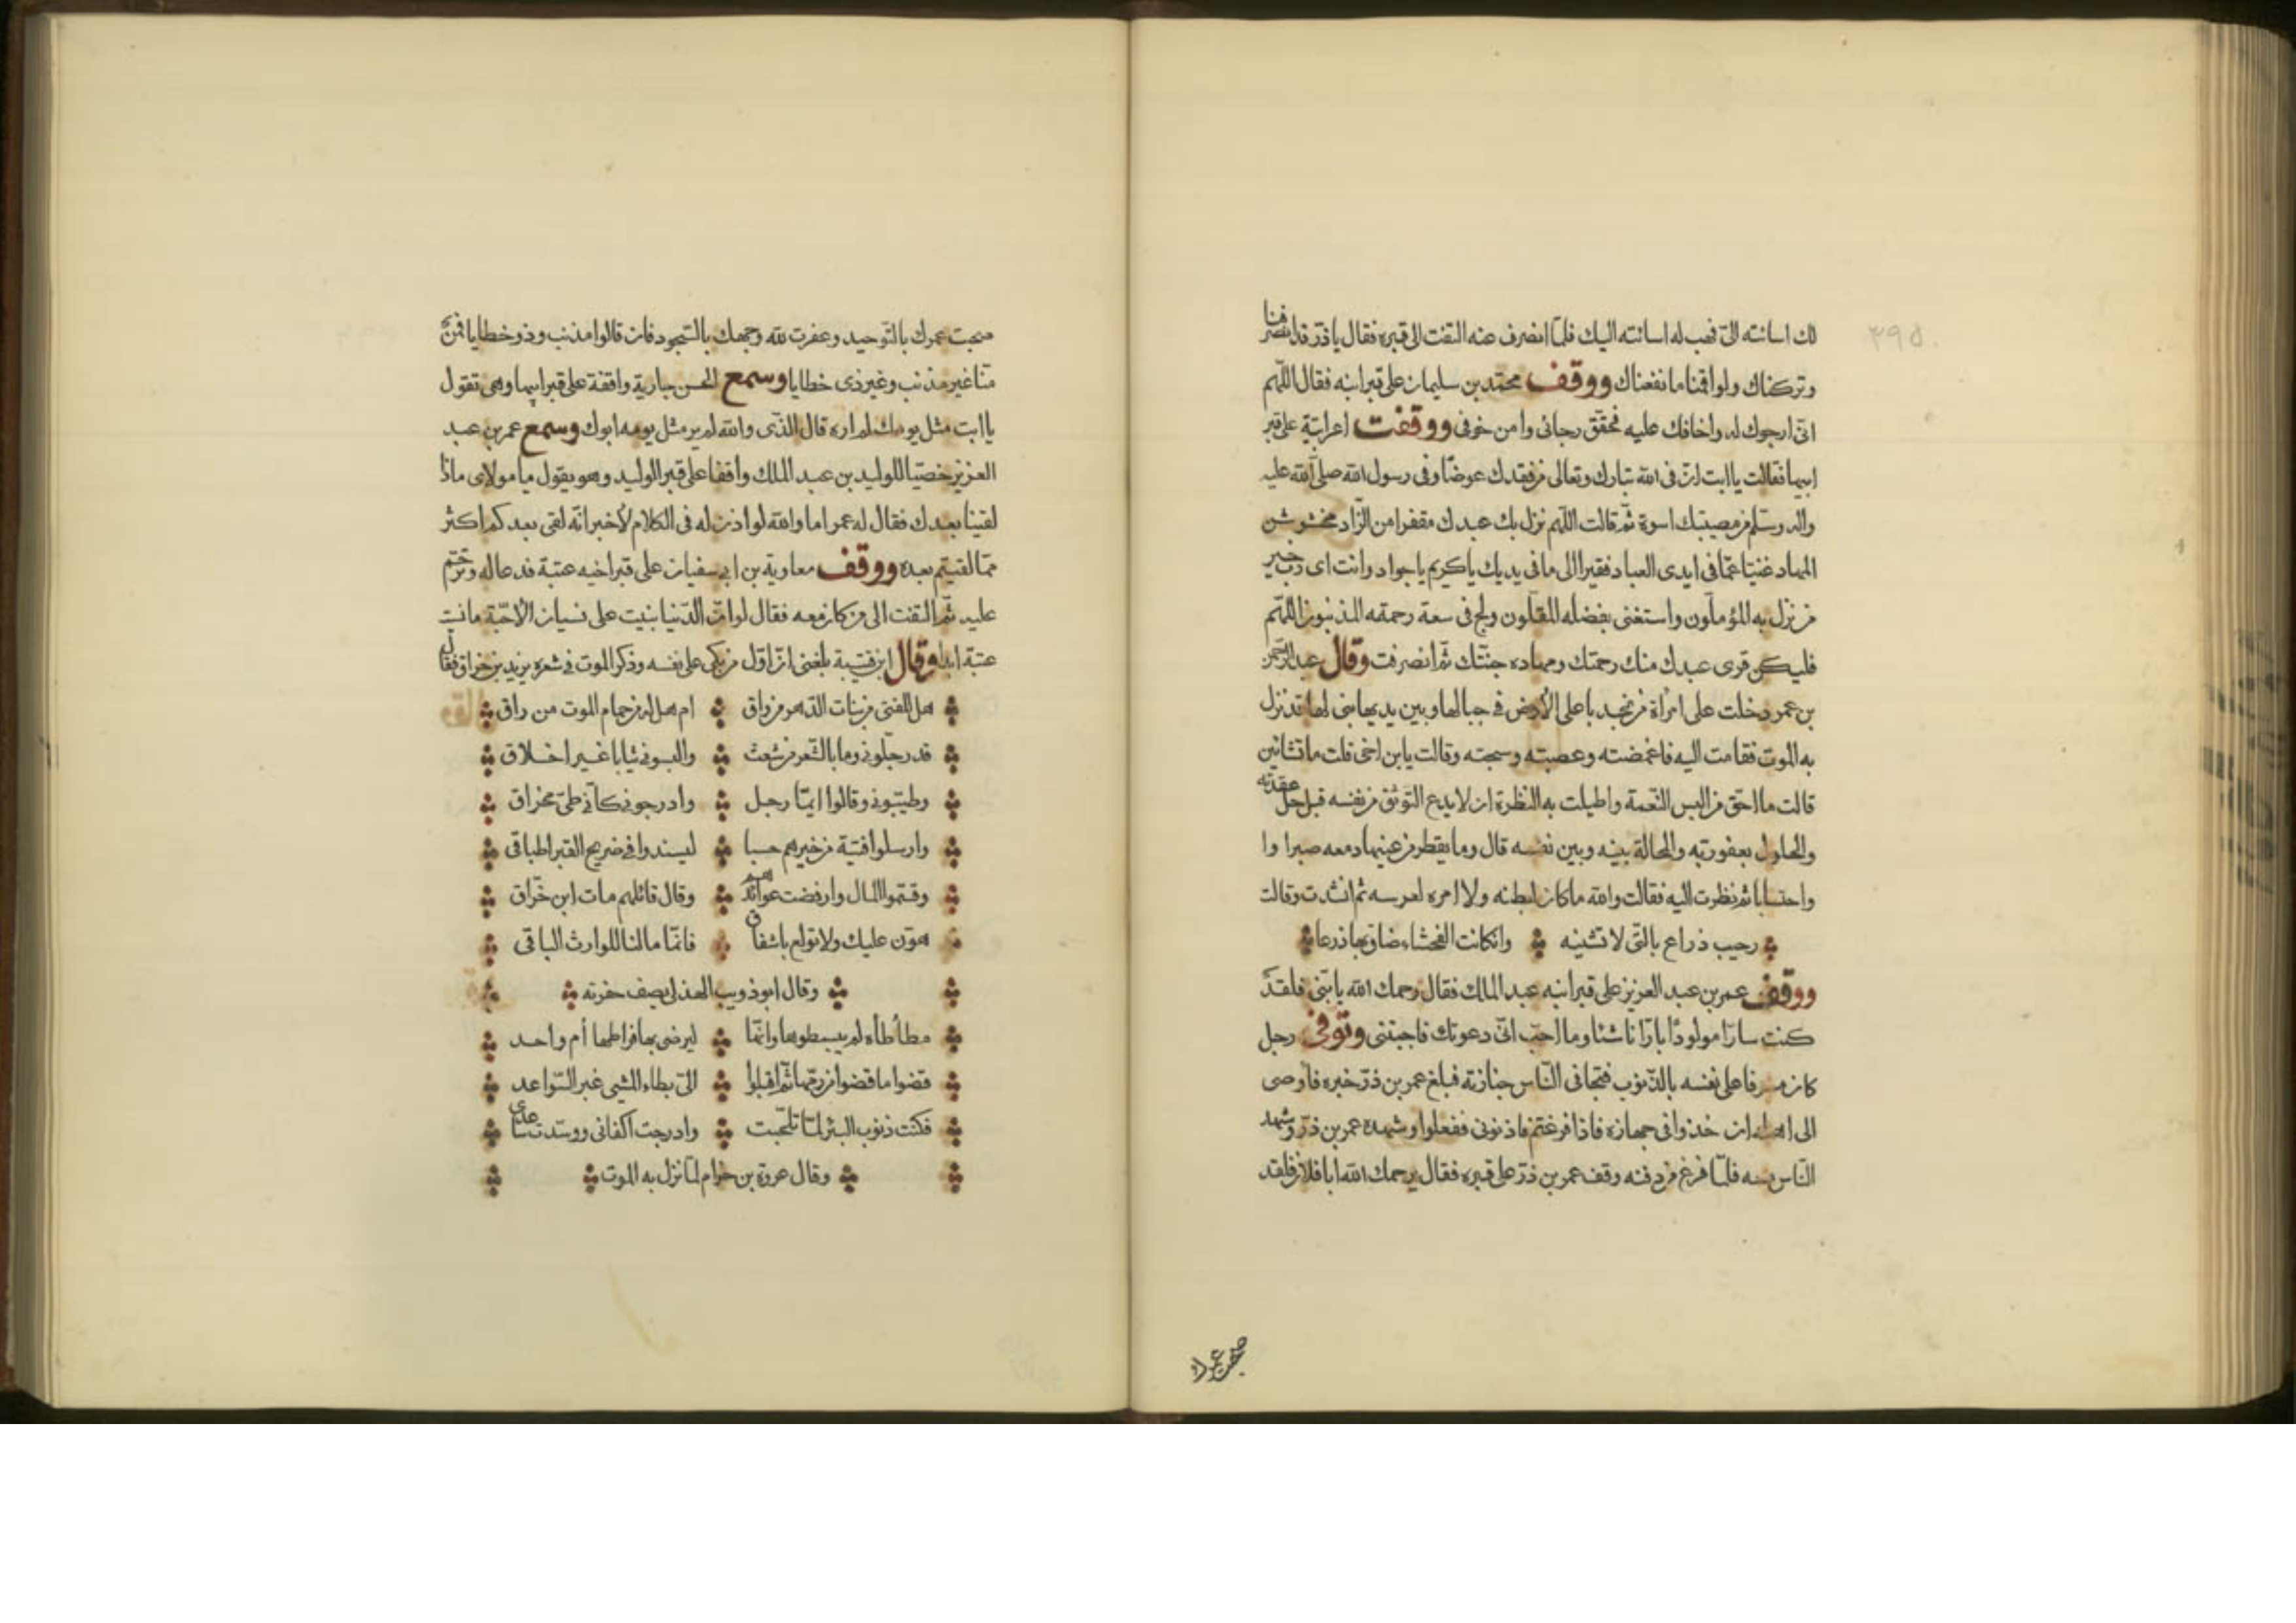 لك اسائته الىّ فهب له اسائته اليك فلمّا انصرف عنه التفت الى قبره فقال ياذرّ قد انصرفنا
وتركناك ولو اقمنا ما نفعناك ووقف محمّد بن سليمان على قبر ابنه فقال اللّهم
انّى ارجوك له واخافك عليه فحقّق رجائى وامن خوفى ووقفت اعرابيّة على قبر
ابيها فقالت يا ابت انّ فى الله تبارك وتعالى من فقدك عوضًا وفى رسول الله صلى الله عليه
واله وسلم من مصيبتك اسوة ثمّ قالت اللّهم نزل بك عبدك مقفرا من الزّاد مخشوشن
المهاد غنيّا عمّا فى ايدى العباد فقيرا الى ما فى يديك ياكريم ياجواد وانت اى ربّ خير
من نزل به المؤملون واستغنى بفضله المقلون ولج فى سعة رحمته المذنبون اللّهم
فليكن قرى عبدك منك رحمتك ومهاده جنّتك ثمّ انصرفت وقال عبد الرّحمن
بن عمر دخلت على امراة من نجد باعلى الأرض فى جبالها وبين يديها بنى لها قد نزل
به الموت فقامت اليه فاغمضته وعصبته وسجته وقالت يابن اخى قلت ما تشائين
قالت ما احق من البس النّعمة واطيلت به النظرة ان لا يدع التّوثق من نفسه قبل حلّ عقدته
والحلول بعفورته والمحالة بينه وبين نفسه قال وما يقطر من عينيها دمعه صبرا وا
واحتسابا ثم نظرت اليه فقالت والله ما كان لبطنه ولا امره لعرسه ثم انشدت وقالت
رحيب ذراع بالتى لا تشينه وان كانت الفحشاء ضاق بها ذرعا
ووقف عمر بن عبد العزيز على قبر ابنه عبد الملك فقال رحمك الله يا بنّى فلقد
كنت سارّا مولودًا بارّا ناشئا وما احبّ انّى دعوتك فاجبتنى وتوفى رجل
كان مسرفا على نفسه بالذّنوب فتجافى النّاس جنازته فبلغ عمر بن ذرّ خبره فاوصى
الى اهله ان خذوا فى جهازه فاذا فرغتم فاذنونى ففعلوا وشهده عمر بن ذرّ وشهد
النّاس معه فلمّا فرغ من دفنه وقف عمر بن ذرّ على قبره فقال يرحمك الله ابا فلان فلقد
صحبت عمرك
صحبت عمرك بالتّوحيد وعفرت لله وجهك بالسّجود فان قالوا مذنب وذو خطايا فمن
منّا غير مذنب وغير ذى خطايا وسمع الحسن جارية واقفة على قبر ابيها وهى تقول
يا ابت مثل يومك لم اره قال الذّى والله لم ير مثل يومه ابوك وسمع عمر بن عبد
العزيز خصيّا للوليد بن عبد الملك واقفا على قبر الوليد وهو يقول يا مولاى ماذا
لقينا بعدك فقال له عمر اما والله لو اذن له فى الكلام لأخبر انّه لقى بعدكم اكثر
ممّا لقيتم بعده ووقف معاوية بن ابى سفيان على قبر اخيه عتبة فدعا له وترحّم
عليه ثمّ التفت الى من كان معه فقال لو انّ الدّنيا بنيت على نسيان الأحبّة ما نسيت
عتبة ابدا وقال ابن قتيبة بلغنى انّ اوّل من بكى على نفسه وذكر الموت فى شعره يزيد بن خزاق فقال
هل للفتى من بنات الدّهر من واق ام هل له من حمام الموت من راق
قد رجّلونى وما بالشّعر من شعث والبسونى ثيابا غير اخلاق
وطيّبونى وقالوا ايّما رجل وادرجونى كانّى طىّ مخراق
وارسلوا فتية من خيرهم حسبا ليسندوا فى ضريح القبر اطباقى
وقسّموا المال وارفضت عوائدهم وقال قائلهم مات ابن خرّاق
هوّن عليك ولا تولع باشفاق فانّما مالنا للوارث الباقى
وقال ابو ذويب الهذلى يصف حفرته
مطأطأه لم يبسطوها وانّما ليرضى بها فراطها أم واحد
قضوا ما قضوا من رمّها ثمّ اقبلوا الىّ بطاء المشى غبر السّواعد
فكنت ذنوب البئر لمّا تلحّبت وادرجت اكفانى ووسّدت ساعدى
وقال عروة بن حزام لمّا نزل به الموت